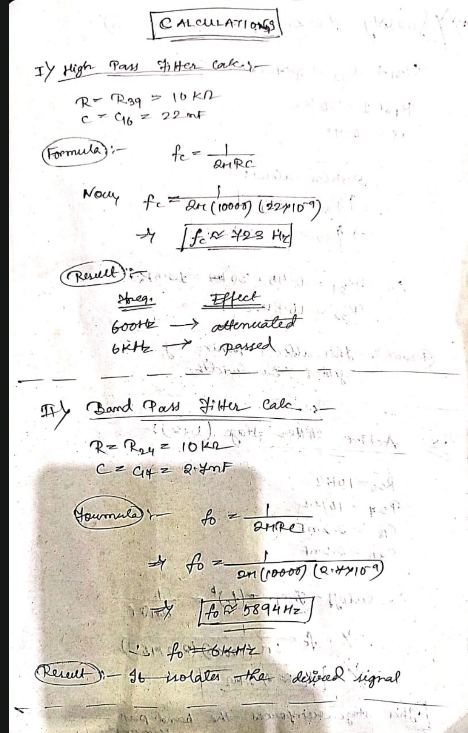 CALCULATIONS
I) High Pass Filter Calc. :-
R = R39 = 10 KΩ
C = C16 = 22 nF
Formula :-
fc = 1 / 2πRC
Now, fc = 1 / 2π (10000) (22×10^-9)
⇒ fc ≈ 723 Hz
Result :-
Freq. Effect
600Hz → attenuated
6KHz → passed
II) Band Pass Filter Calc :-
R = R24 = 10 KΩ
C = C17 = 2.7nF
Formula :-
f0 = 1 / 2πRC
⇒ f0 = 1 / 2π (10000) (2.7×10^-9)
⇒ f0 ≈ 5894 Hz
f0 = 6KHz
Result :- It isolates the desired signal